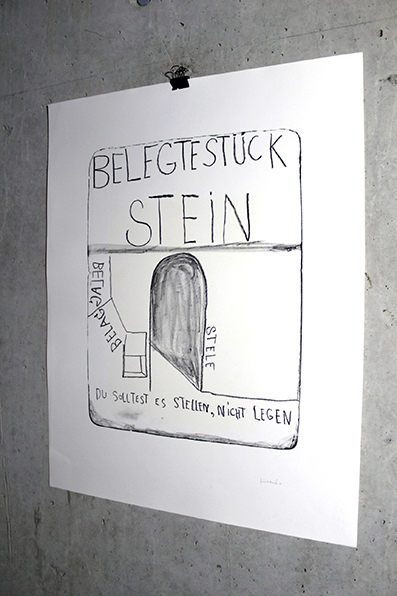 BELEGTESTÜCK
STEIN
BELAG
BELAG
STELE
DU SOLLTEST ES STELLEN, NICHT LEGEN